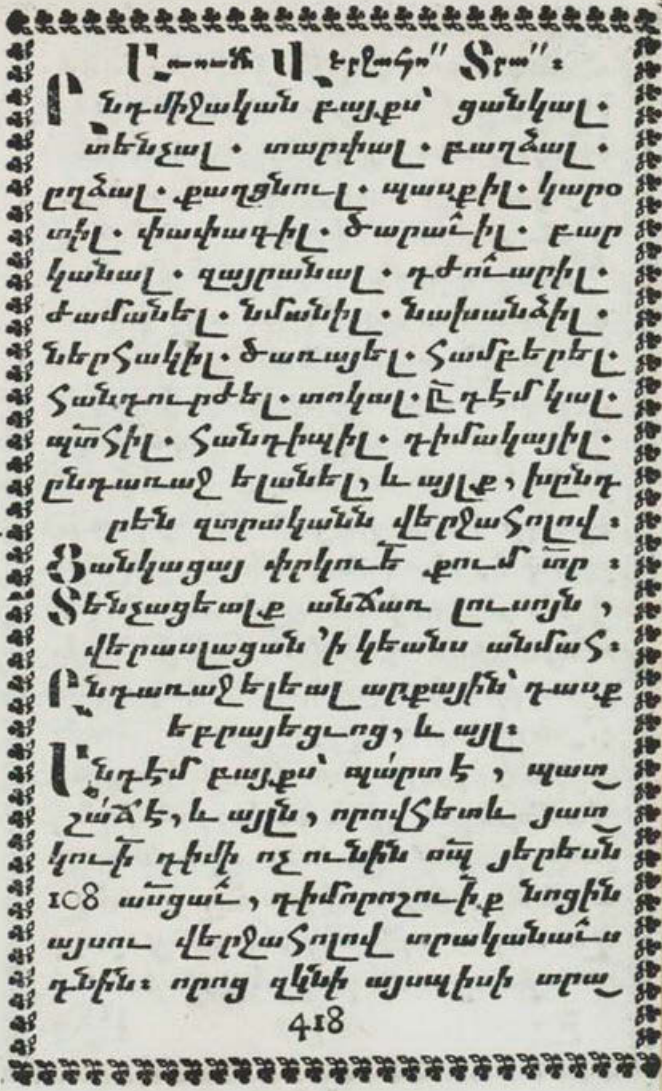 Ընդմիջական բայքս՝ ցանկալ.
տենչալ. տարփալ. բաղձալ.
ըղձալ. քաղցնուլ. պասքիլ. կարօ
տիլ. փափագիլ. ծարաւիլ. բար
կանալ. զայրանալ. դժուարիլ.
ժամանել. նմանիլ. նախանձիլ.
ներհակիլ. ծառայել. համբերել.
հանդուրժել. տոկալ. ընդդէմ կալ.
պտհիլ. հանդիպիլ. դիմակայիլ.
ընդառաջ ելանել, և այլք, խընդ
րեն զտրականն վերջահոլով։
Ցանկացայ փրկուե՟ քում տր՟։
Տենչացեալք անճառ լուսոյն,
վերասլացան ՚ի կեանս անմահ։
Ընդառաջ ելեալ արքային՝ դասք
եբրայեցւոց, և այլ։
Անդէմ բայքս՝ պարտ է, պատ
շաճ է, և այլն, որովհետև յատ
կուի՟ դիմի ոչ ունին որպ՟ յերեսն
108 ասցաւ՟, դիմորոշուի՟ք նոցին
այսու վերջահոլով տրականաւս
դնին։ որոց զկնի այսպիսի տրա
418